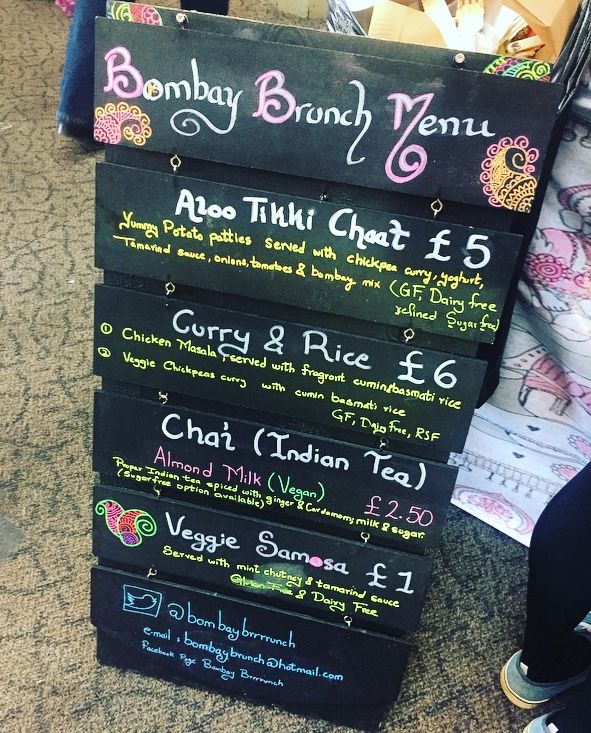 Bombay Brunch Menu
Aloo Tikki Chaat £5
Yummy Potato patties served with chickpea curry, yoghurt,
Tamarind sauce, onions, tomatoes & bombay mix (GF, Dairy free
refined Sugar free)
Curry & Rice £6
① Chicken Masala served with fragrant cumin basmati rice
② Veggie Chickpeas curry with cumin basmati rice
GF, Dairy free, RSF
Chai (Indian Tea)
Almond Milk (Vegan) £2.50
Proper Indian tea spiced with ginger & Cardamom, milk & sugar
(Sugar free option available)
Veggie Samosa £1
Served with mint chutney & tamarind sauce
Gluten Free & Dairy Free
@bombaybrrrunch
e-mail : bombaybrunch@hotmail.com
Facebook Page Bombay Brrrunch